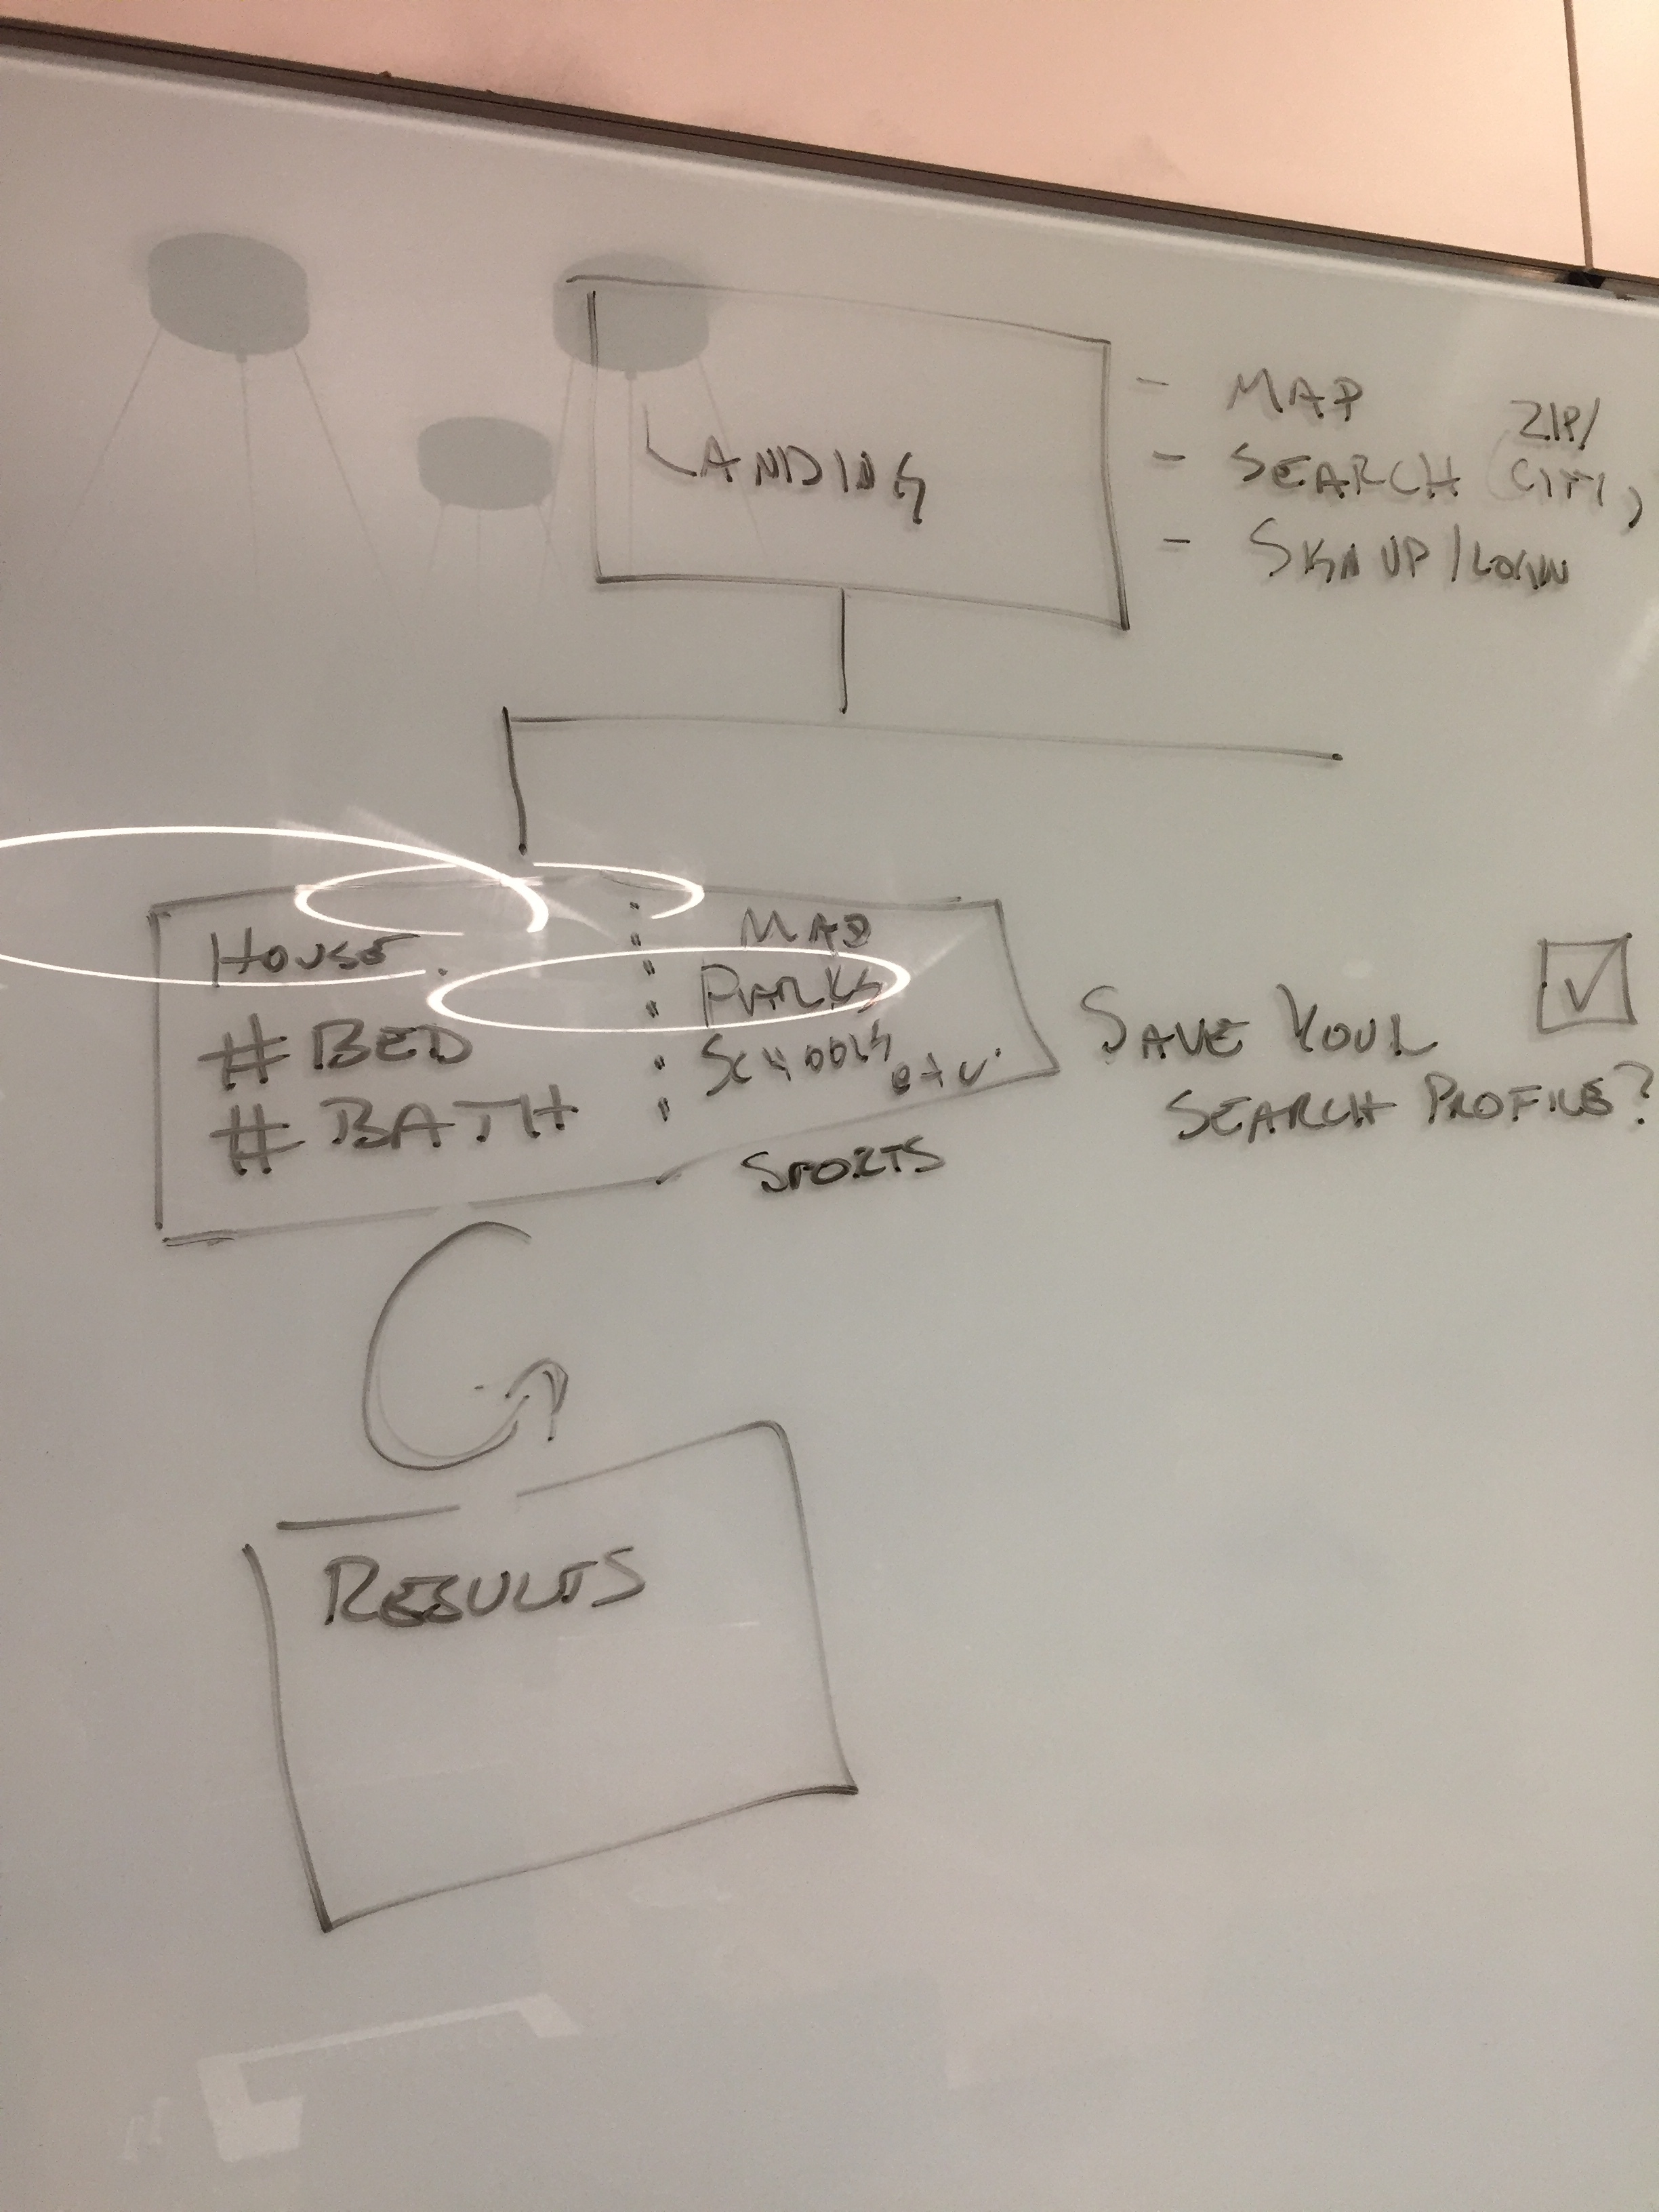 LANDING
- MAP
- SEARCH (ZIP/
CITY,
- SIGN UP / LOGIN
HOUSE
# BED
# BATH
MAP
PARKS
SCHOOLS
etc.
SPORTS
SAVE YOUR
SEARCH PROFILE?
RESULTS